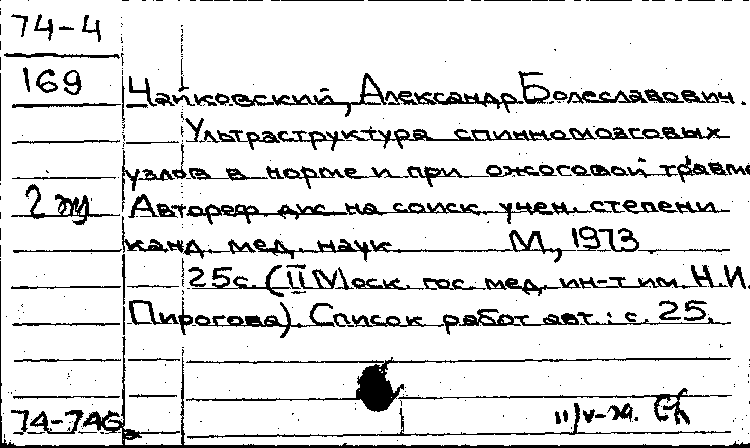 74-4
169
Чайковский, Александр Болеславович.
Ультраструктура спинномозговых
узлов в норме и при ожоговой травме
2
Автореф. дис. на соиск. учен. степени
канд. мед. наук. М., 1973.
25с. (II Моск. гос. мед. ин-т им. Н.И.
Пирогова). Список работ авт.: с. 25.
74-746